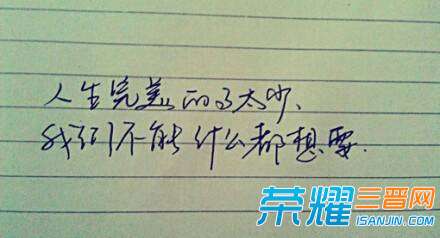 人生完美的事太少、
我们不能什么都想要.
荣耀三晋网
ISANJIN.COM